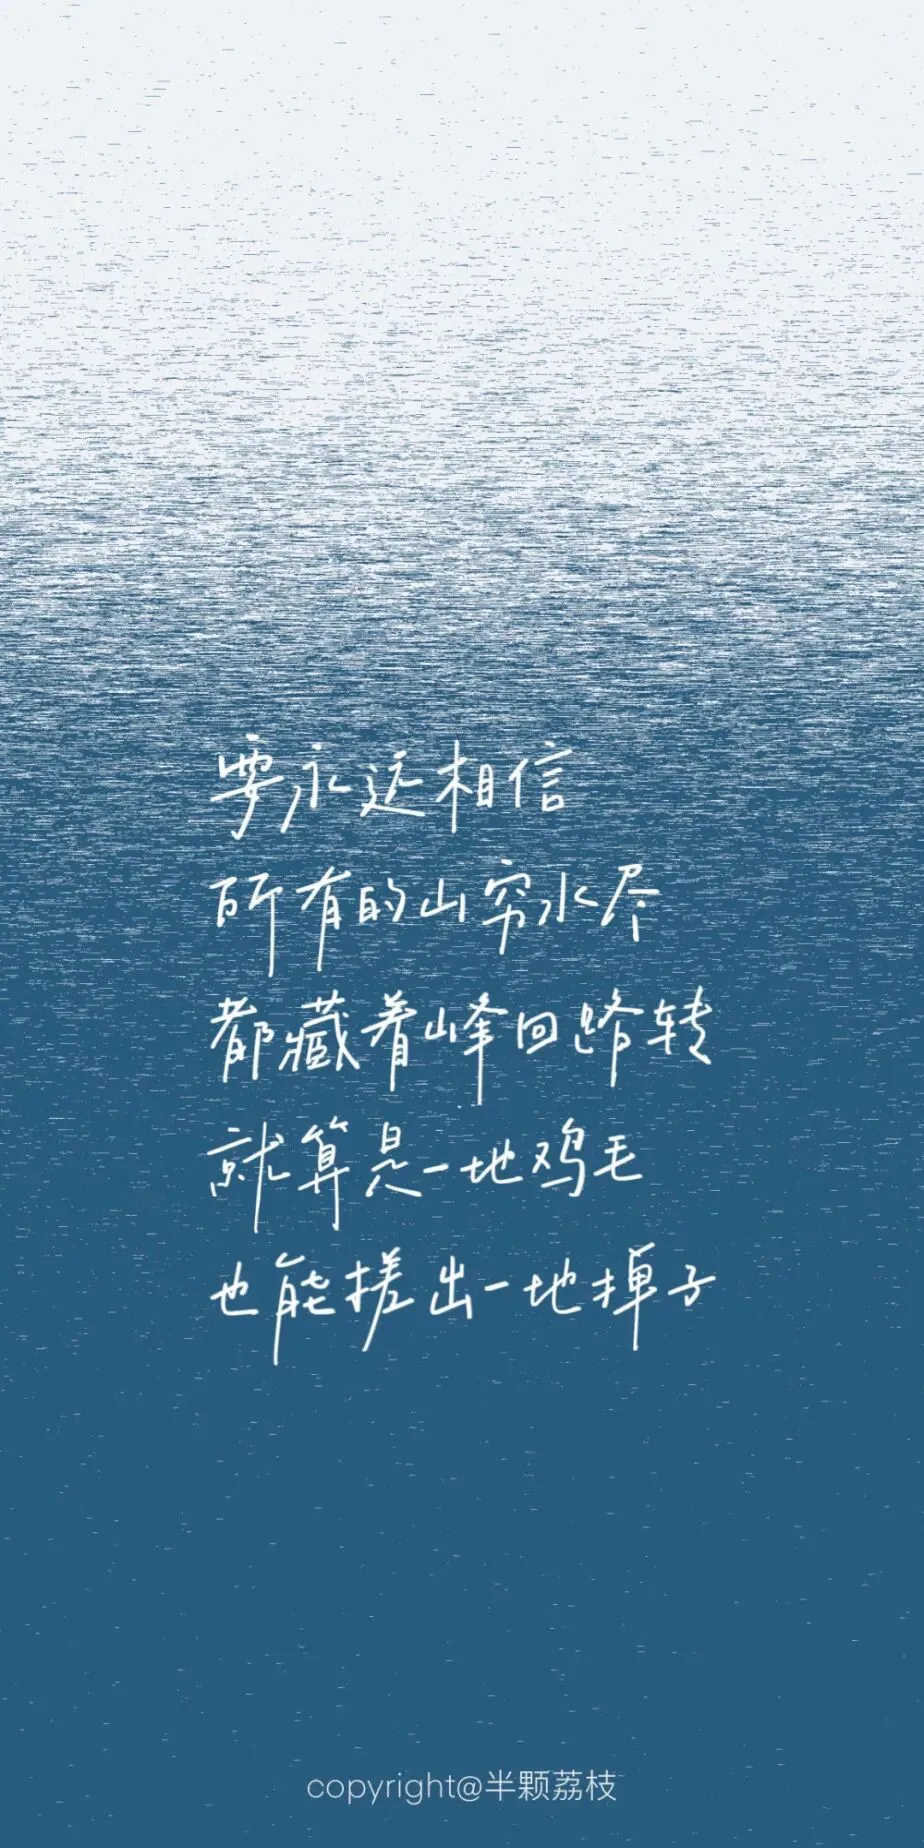 要永远相信
所有的山穷水尽
都藏着峰回路转
就算是一地鸡毛
也能搓出一地掸子
copyright@半颗荔枝